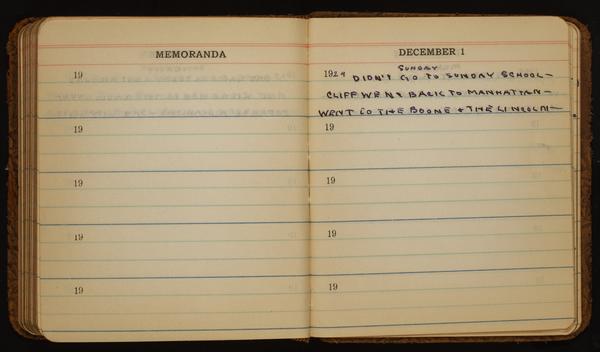 MEMORANDA
19
19
19
19
19
DECEMBER 1
SUNDAY
1929 DIDN'T GO TO SUNDAY SCHOOL—
CLIFF WENT BACK TO MANHATTAN—
WENT TO THE BOONE + THE LINCOLN—
19
19
19
19